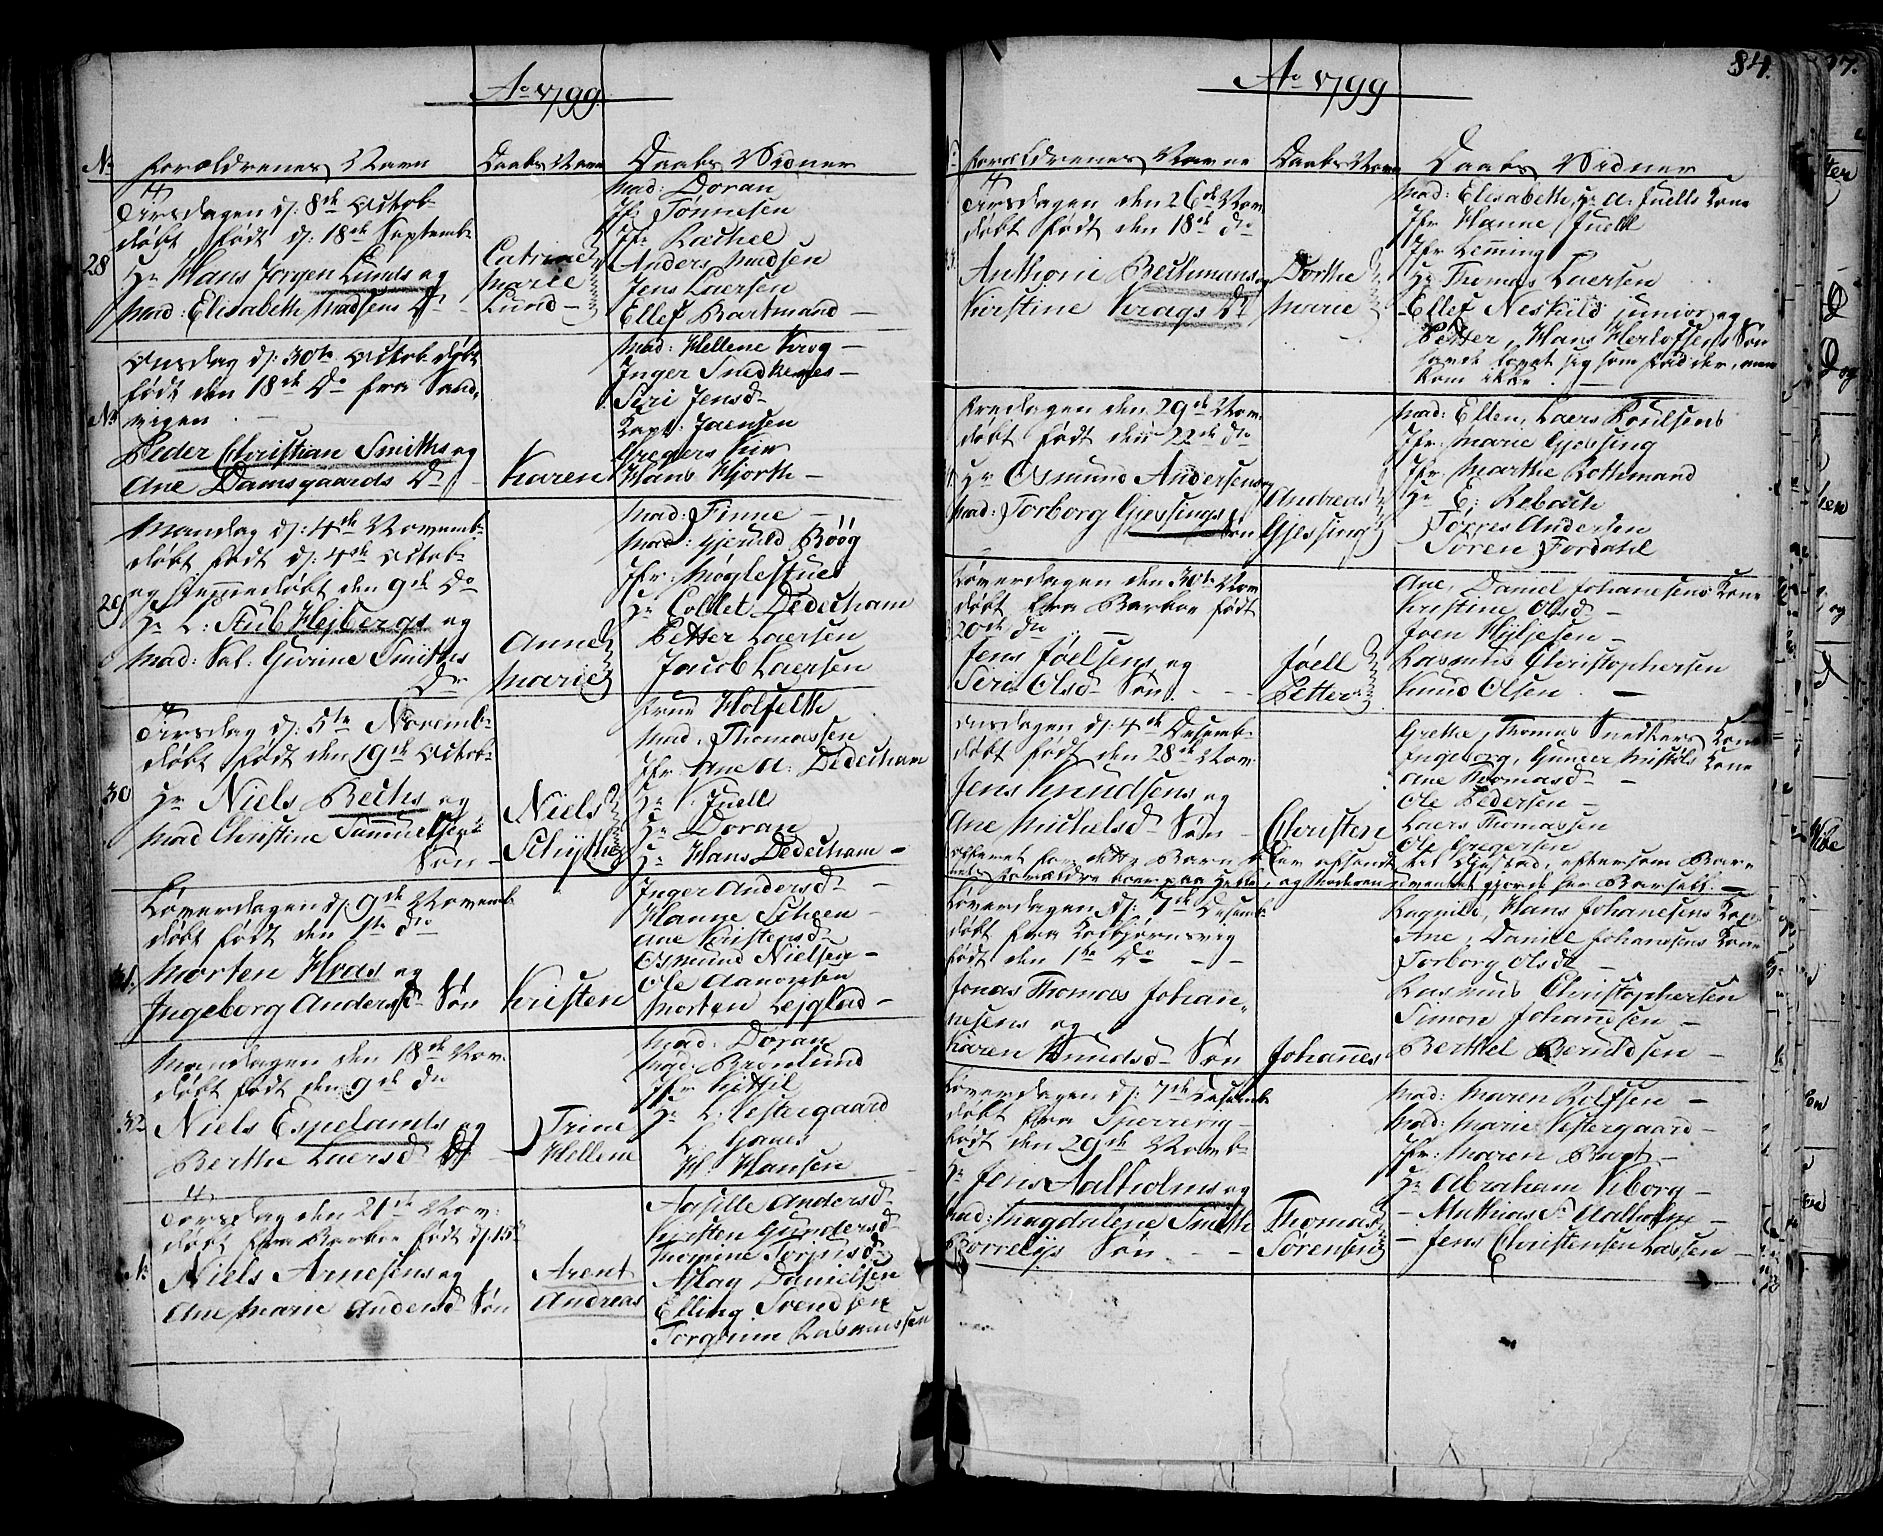 Ao 1799
No Forældrenes Navn Daabs Navn Daabs Vidner
Tirsdagen d: 8de Octob:
døbt født d: 18de Septemb:
28 Hr Hans Jørgen Lunds og
Mad: Elisabeth Madsens Dr
Catrine
Marie
Lund
Mad: Doran
Jfr Tønnesen
Jfr Rachel
Anders Madsen
Jens Laersen
Ellef Bartmand
Onsdag d: 30te Octob: døbt
født den 18de Do fra Sand,
vigen
Peder Christian Smiths og
Ane Damsgaards Dr
Karen
Mad: Hellene Krog
Inger Snedkenes
Siri Jensdr
Capt: Jaensen
Gregers Kiær
Hans Hjorth
Mandag d: 4de Novemb:
døbt født d: 4de Octob:
og hjemmedøbt den 9de Do
29 Hr L: Stub Hejbergs og
Mad: Sal: Gurine Smiths
Dr
Anne
Marie
Mad: Finne
Mad: Gjeruld Böög
Jfr: Møglestues
Hr Collet Dedecham
Petter Laersen
Jacob Laersen
Tirsdag d: 5te Novemb:
døbt født den 19de Octob:
30 Hr Niels Bechs og
Mad Christine Sammelsens
Søn
Niels
Schytte
Frue Holfelth
Mad: Thomassen
Jfr: Ane A: Dedecham
Hr Juell
Hr Doran
Hr Hans Dedecham
Løverdagen d: 9de Novemb:
døbt født den 1te Do
31 Morten Hraas og
Ingeborg Andersdr Søn
Kristen
Inger Andersdr
Hanne Scheen
Ane Kristensdr
Osmund Nielsen
Ole Aanonsen
Morten Lejglad
Mandagen den 18de Nov:
døbt født den 9de Do
32 Niels Espelands og
Berthe Laersdr Dr
Trine
Hellene
Mad: Doran
Mad: Brønlund
Jfr Kittil
Hr L: Vestergaard
L: Ganes
H: Hansen
Torsdag den 21de Nov:
døbt fra Barboe født d: 15de
Niels Arnesens og
Ane Marie Andersdr Søn
Arent
Andreas
Aasille Andersdr
Kirsten Gundersdr
Thomine Torjusdr
Aslag Danielsen
Elling Svendsen
Torgrim Rasmussen
84.
Ao 1799
Forældrenes Navne Daabs Navn Daabs Vidner
Tirsdagen den 26de Nov:
døbt født den 18de Do
Anthoni Bechmans og
Kirstine Krags Dr
Dorthe
Marie
Mad: Elisabeth, Hr A: Juells Kone
Jfr Hanne Juell
Jfr Lemming
Hr Thomas Laersen
Ellef Neskild junior og
Petter, Hans Herlofsens Søn
havde lovet sig som Fadder, men
kom ikke
Fredagen den 29de Nov:
døbt født den 22de Do
Hr Osmund Andersens og
Mad: Torborg Gjessings
Søn
Andreas
Gjessing
Mad: Ellen, Laers Poulsens
Jfr: Marie Gjessing
Jfr: Marthe Rothmand
Hr E: Rebach
Torres Andersen
Søren Fjordahl
Løverdagen den 30te Nov:
døbt fra Barboe født
20de Do
Jens Joelsens og
Seri Olsdr Søn
Joell
Petter
Ane, Daniel Johannesens Kone
Kirstine Olsdr
Joen Hyljesen
Rasmus Christophersen
Knud Olsen
Onsdagen d: 4de Desemb:
døbt født den 28de Nov:
Jens Knudsens og
Ane Michelsdr Søn
Christen
Grethe, Thomas Snedkers Kone
Ingeborg, Gunder Kristols Kone
Ane Thomasdr
Ole Pedersen
Laers Thomassen
Ole Gregersen
Løverdagen d: 7de Desemb:
døbt fra Kolbjørnsvig
født den 1te Do
Jonas Thomas Johan,
nesens og
Karen Knudsdr Søn
Johannes
Ragnild, Hans Johanesens Kone
Ane, Daniel Johannesens Kone
Torborg Olsdr
Rasmus Christophersen
Simon Johannesen
Berthel Berntdsen
Løverdagen d: 7de Desemb:
døbt fra Sperrevig
født den 29de Novemb:
Hr Jens Aalholms og
Mad: Magdalene Smith
Borrelys Søn
Thomas
Sørensen
Mad: Maren Rolfsen
Mad: Marie Vestergaard
Jfr: Maren Bugt
Hr Abraham Viborg
Mathias S: Aalholm
Jens Christensen Lassen